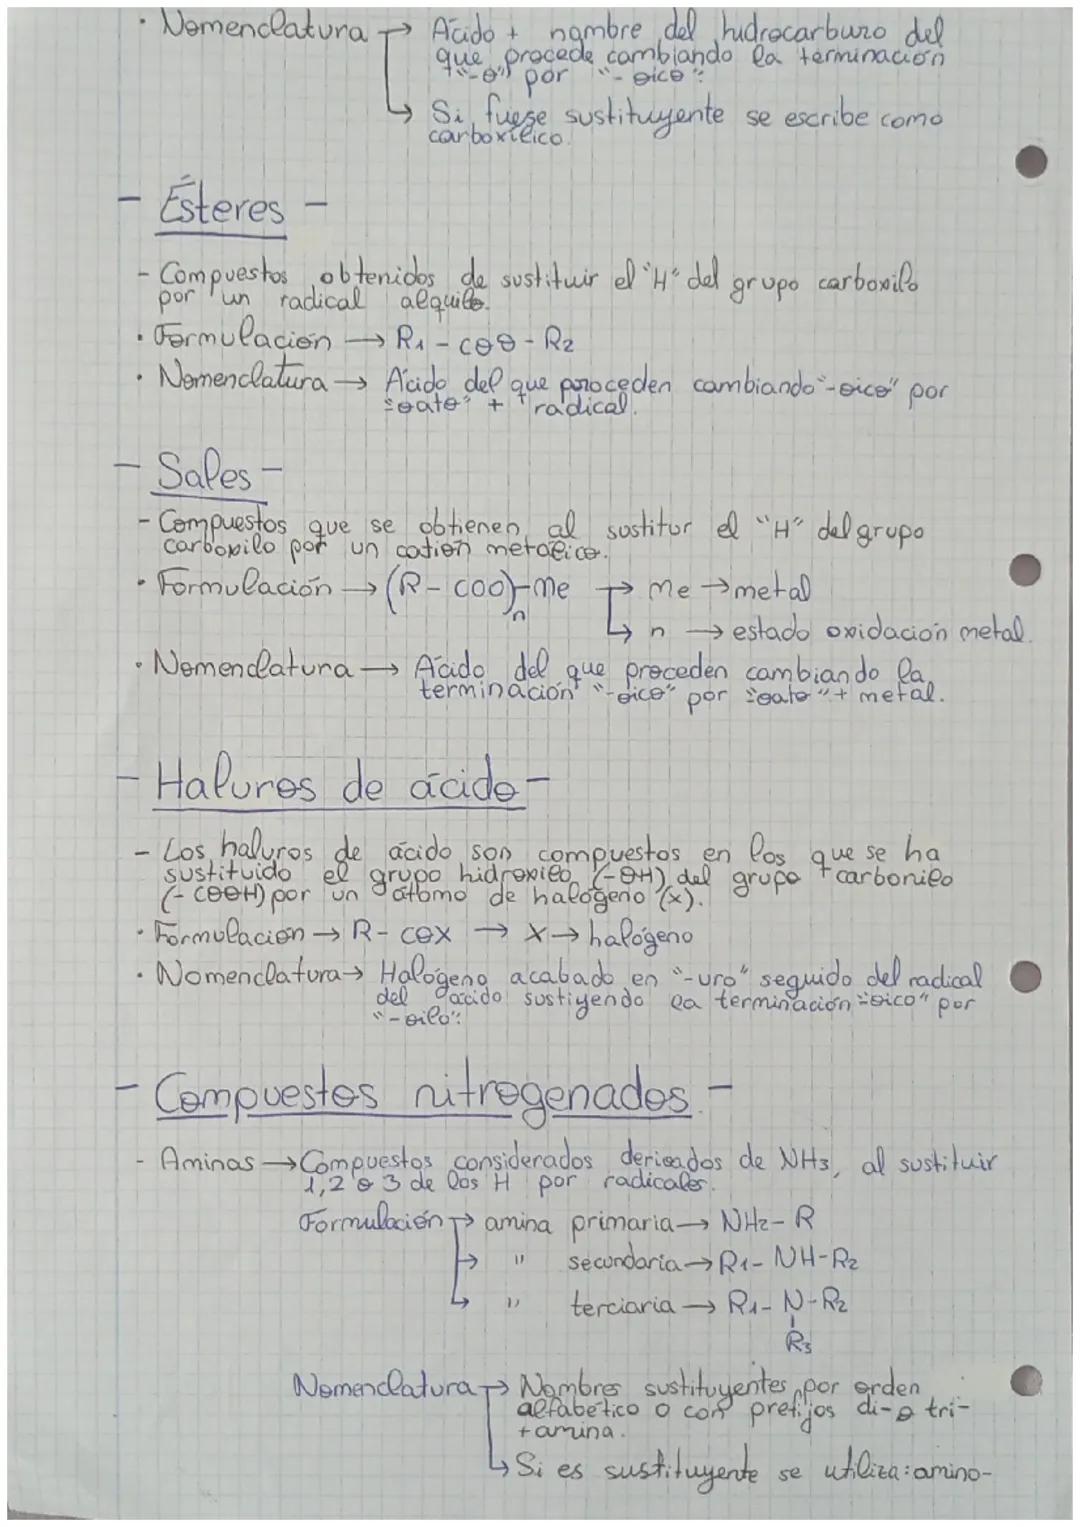 · Nomenclatura → Ácido + nombre del hidrocarburo del
que procede cambiando la terminación
"-o" por "-oico".
↳ Si fuese sustituyente se escribe como
carboxílico.
- Ésteres -
- Compuestos obtenidos de sustituir el "H" del grupo carboxilo
por un radical alquilo.
· Formulación → R1 - COO - R2
· Nomenclatura → Ácido del que proceden cambiando "-oico" por
"-oato" + radical.
- Sales -
- Compuestos que se obtienen al sustitur el "H" del grupo
carboxilo por un catión metálico.
· Formulación → (R - COO)n-Me → Me → metal
↳ n → estado oxidación metal.
· Nomenclatura → Ácido del que proceden cambiando la
terminación "-oico" por "-oato" + metal.
- Haluros de ácido -
- Los haluros de ácido son compuestos en los que se ha
sustituido el grupo hidroxilo (-OH) del grupo carbonilo
(-COOH) por un átomo de halógeno (x).
· Formulación → R - COX → X → halógeno
· Nomenclatura → Halógeno acabado en "-uro" seguido del radical
del ácido sustiyendo la terminación "-oico" por
"-oilo".
- Compuestos nitrogenados -
- Aminas → Compuestos considerados derivados de NH3, al sustituir
1, 2 o 3 de los H por radicales.
Formulación → amina primaria → NH2 - R
→ " secundaria → R1 - NH - R2
↳ " terciaria → R1 - N - R2
R3
Nomenclatura → Nombres sustituyentes por orden
alfabético o con prefijos di- o tri-
+ amina.
↳ Si es sustituyente se utiliza: amino-